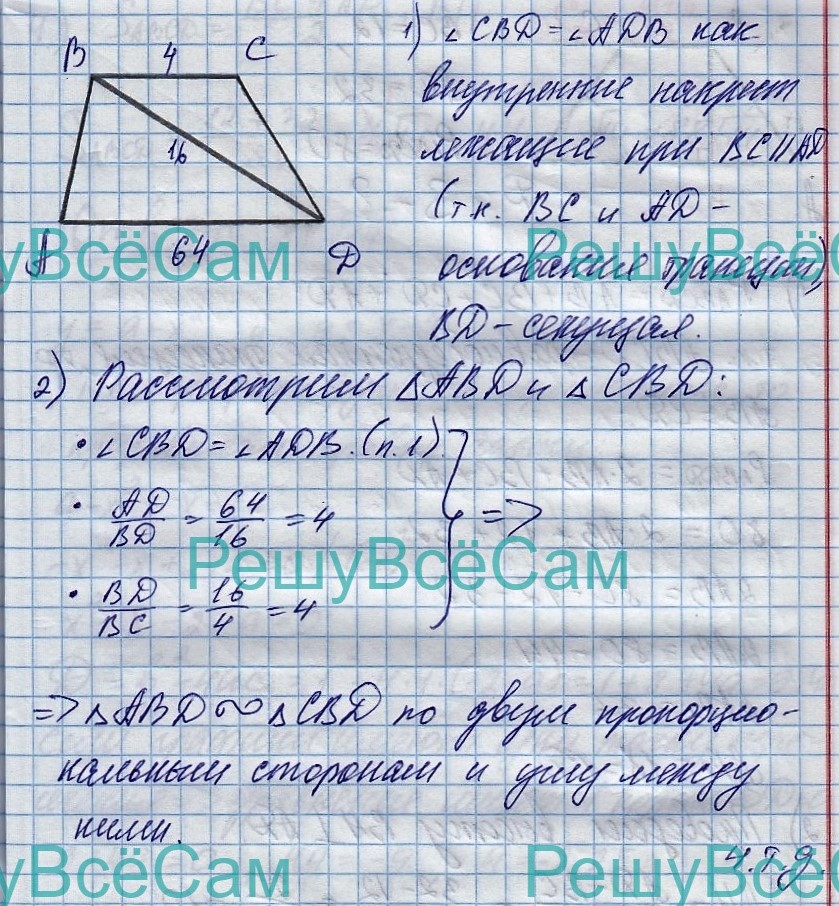 1) ∠CBD=∠ADB как
B 4 C
внутренние накрест
16
лежащие при BC||AD
(т.к. BC и AD-
A 64 D
основания трапеции),
BD-секущая.
2) Рассмотрим △ABD и △CBD:
• ∠CBD=∠ADB.(п.1)
• AD/BD = 64/16 = 4
=>
• BD/BC = 16/4 = 4
=> △ABD ∾ △CBD по двум пропорцио-
нальным сторонам и углу между
ними.
ч.т.д.
РешуВсёСам
РешуВсёСам
РешуВсёСам
РешуВсёСам
РешуВсёСам